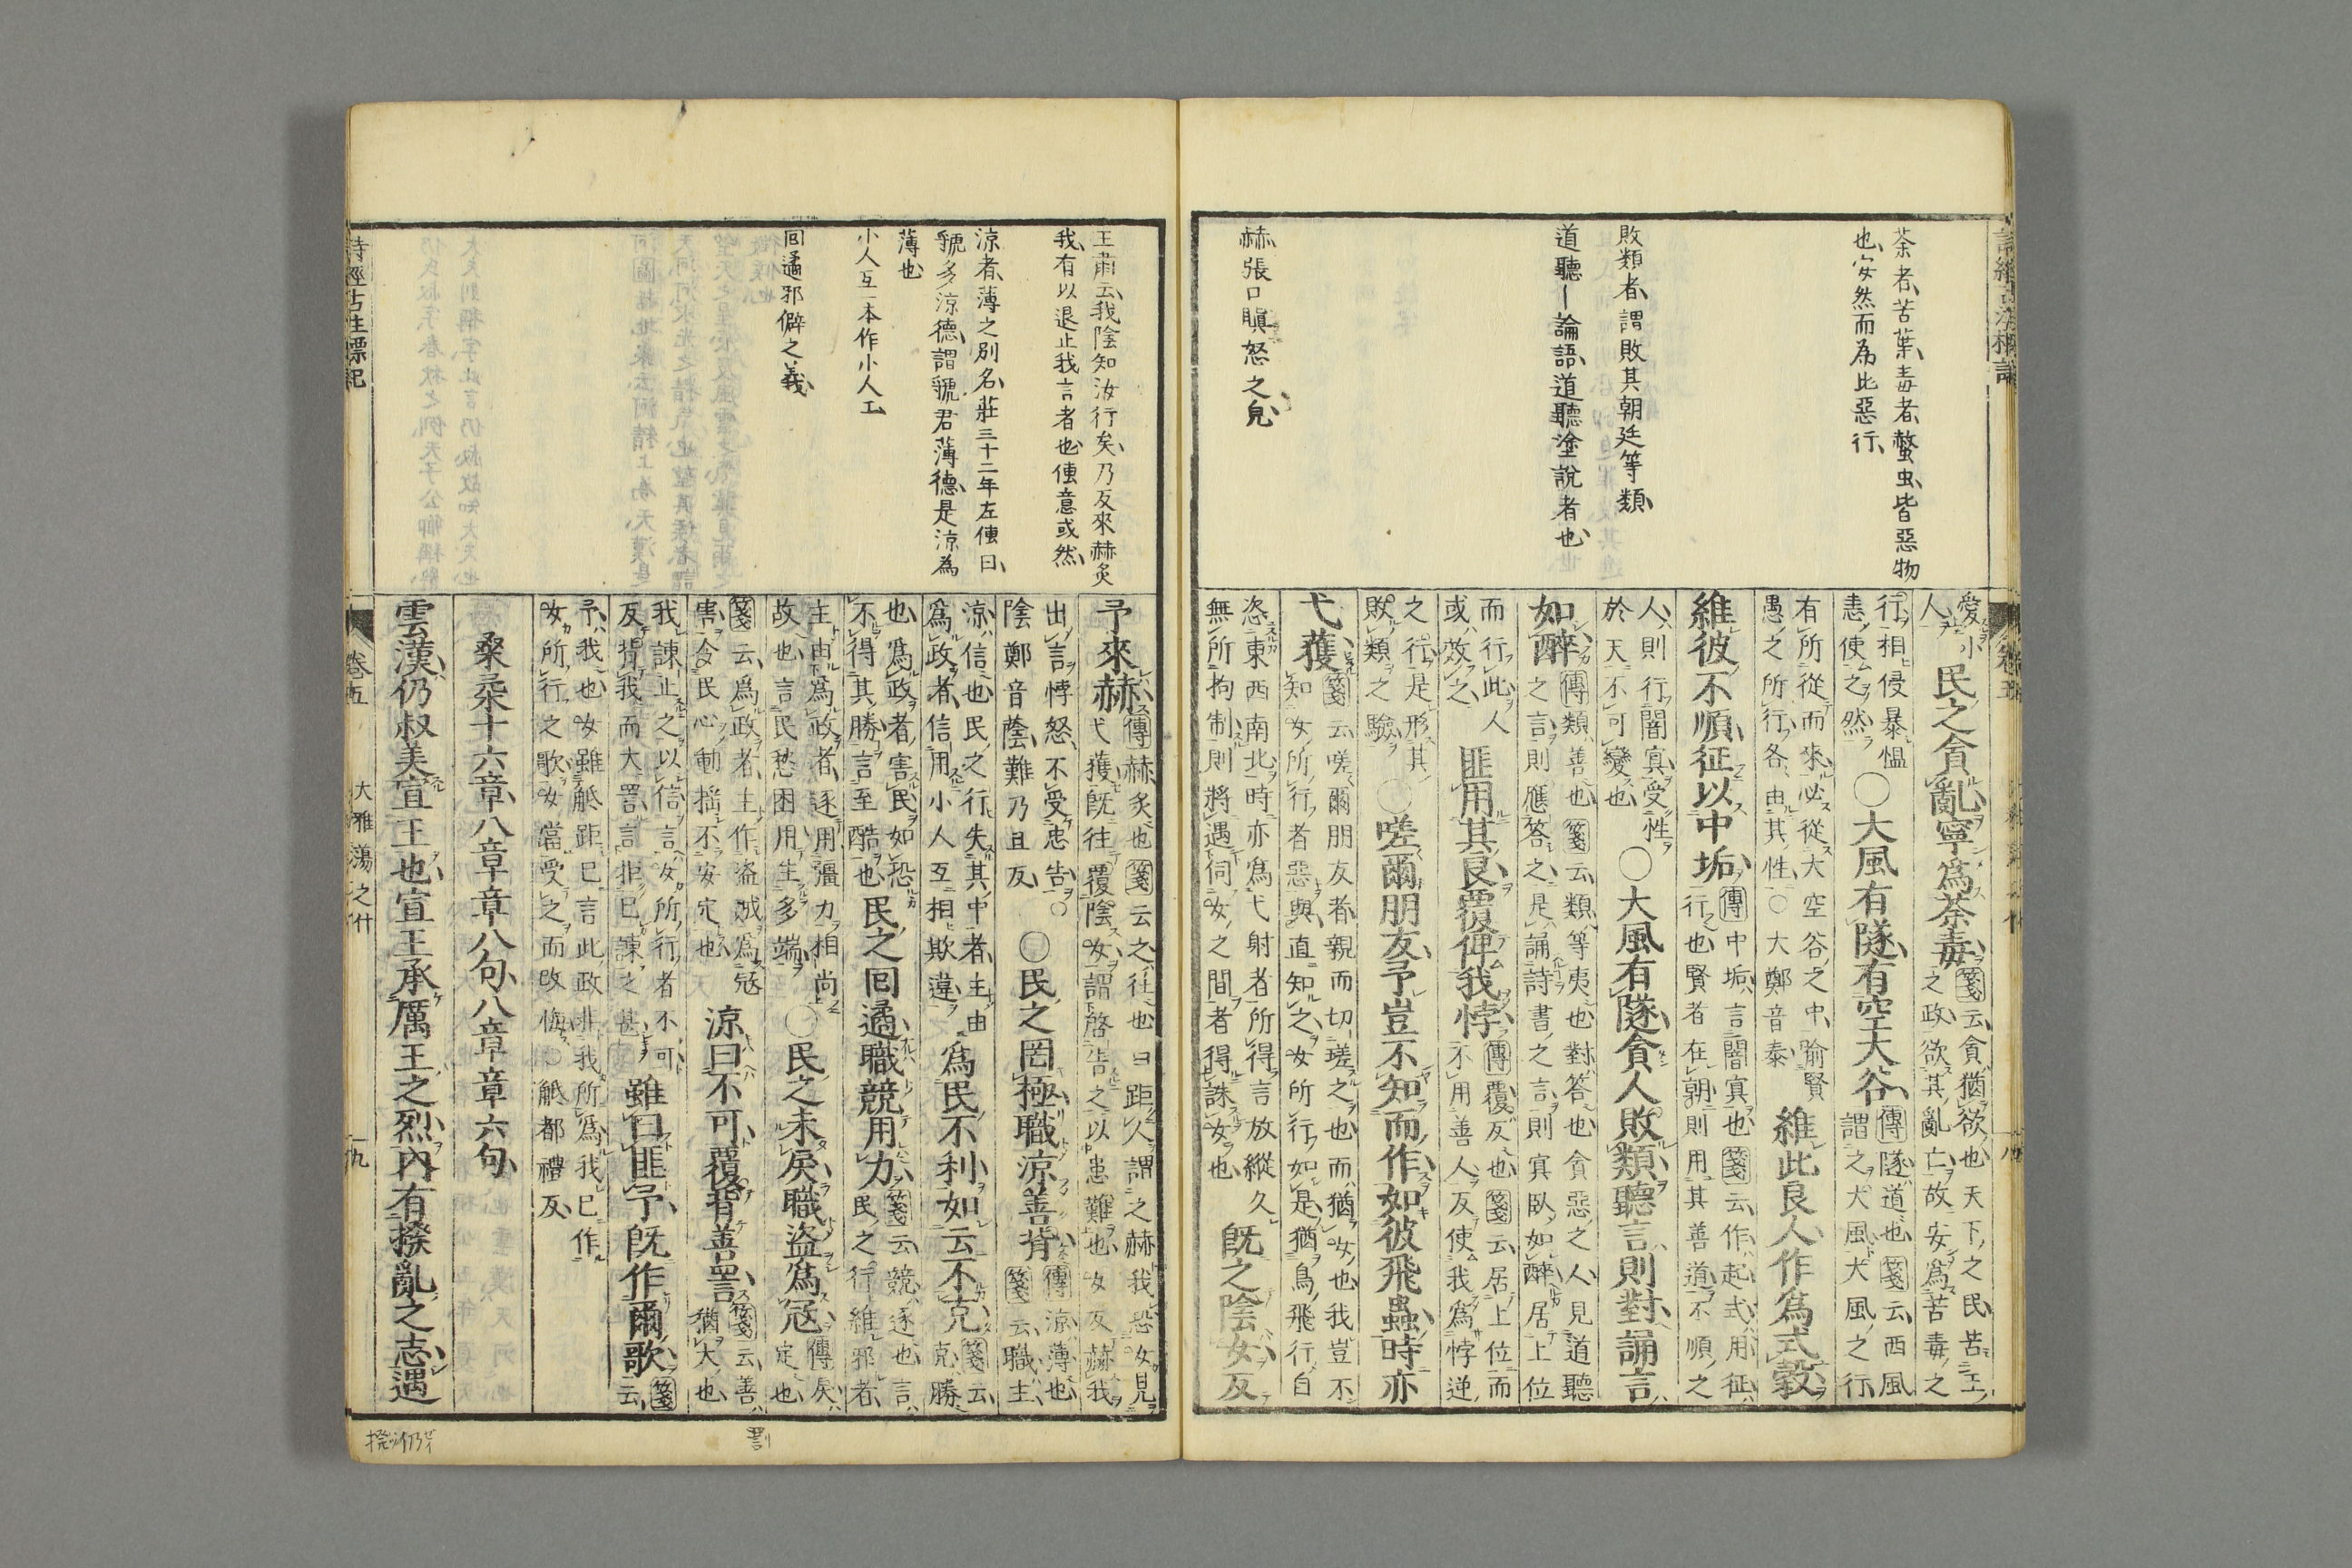 荼者、苦葉、毒者、螫虫、皆惡物
也、安然而為此惡行、
敗類者、謂敗其朝廷等類、
道聽－論語、道聽塗說者也、
赫、張口瞋怒之皃、
愛小
人
民之貪亂寧爲荼毒
箋云貪猶欲也天下之民苦王
之政欲其亂亡故安爲苦毒之
行相侵暴慍
恚使之然
〇大風有隧有空大谷
傳隧道也箋云西風
謂之大風大風之行
有所從而來必從大空谷之中喻賢
愚之所行各由其性〇大鄭音泰
維此良人作爲式穀
維彼不順征以中垢
傳中垢言闇冥也箋云作起式用征
行也賢者在朝則用其善道不順之
人則行闇冥受性
於天不可變也
〇大風有隧貪人敗類聽言則對誦言
如醉
傳類善也箋云類等夷也對答也貪惡之人見道聽
之言則應答之是誦詩書之言則冥臥如醉居上位
而行此人
或效之
匪用其良覆俾我悖
傳覆反也箋云居上位而
不用善人反使我爲悖逆
之行是形其
敗類之驗
〇嗟爾朋友予豈不知而作如彼飛蟲時亦
弋獲
箋云嗟爾朋友者親而切瑳之也而猶女也我豈不
知女所行者惡與直知之女所行如是猶鳥飛行自
恣東西南北時亦爲弋射者所得言放縱久
無所拘制則將遇伺女之間者得誅女也
旣之陰女反
王肅云、我陰知汝行矣、乃反來赫炙
我、有以退止我言者也、傳意或然、
涼者、薄之別名、莊三十二年左傳曰、
虢多涼德、謂虢君薄德、是涼為
薄也
小人互一本作小人工、
囘遹邪僻之義、
予來赫
傳赫炙也箋云之往也口距人謂之赫我恐女見
弋獲旣往覆陰女謂啓告之以患難也女反赫我
出言悖怒不受忠告〇
陰鄭音蔭難乃且反
〇民之罔極職涼善背
傳涼薄也
箋云職主
涼信也民之行失其中者主由
爲政者信用小人互相欺違
爲民不利如云不克
箋云
克勝
也爲政者害民如恐
不得其勝言至酷也
民之囘遹職競用力
箋云競逐也言
民之行維邪者
主由爲政者逐用彊力相尚
故也言民愁困用生多端
〇民之未戾職盜爲冦
傳戾
定也
箋云爲政者主作盜賊爲冦
害令民心動搖不安定也
涼曰不可覆背善詈
箋云善
猶大也
我諫止之以信言女所行者不可
反背我而大詈言拒已諫之甚
雖曰匪予旣作爾歌
箋
云
予我也女雖觝距已言此政非我所爲我已作
女所行之歌女當受之而改悔〇觝都禮反
桑柔十六章八章章八句八章章六句
雲漢仍叔美宣王也宣王承厲王之烈內有撥亂之志遇
詩經古註標記
卷五
大雅蕩之什
十九